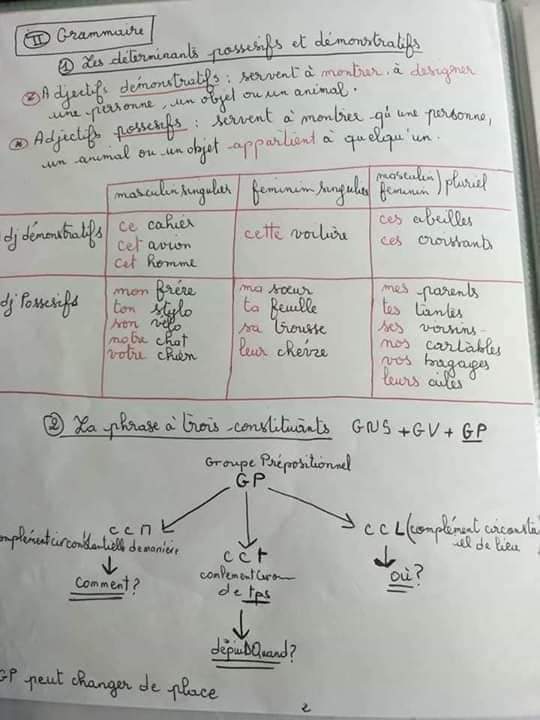 II Grammaire
1 Les déterminants possesifs et démonstratifs
Adjectifs démonstratifs : servent à montrer, à designer
une personne, un objet ou un animal.
Adjectifs possesifs : servent à montrer qu'une personne,
un animal ou un objet appartient à quelqu'un.
masculin singulier feminim singulier masculin feminim ) pluriel
dj démonstratifs
ce cahier
cet avion
cet homme
cette voiture
ces abeilles
ces croissants
dj Possesifs
mon frère
ton stylo
son vélo
notre chat
votre chien
ma sœur
ta feuille
sa trousse
leur chevre
mes parents
tes tantes
ses voisins
nos cartables
vos bagages
leurs ailes
2 La phrase à trois constituants GNS + GV + GP
Groupe Prépositionnel
GP
CCM
omplément circonstentielle de manière
Comment?
CCt
de tps
Quand?
CCL (complément circonsta
iel de lieu
où?
GP peut changer de place
2